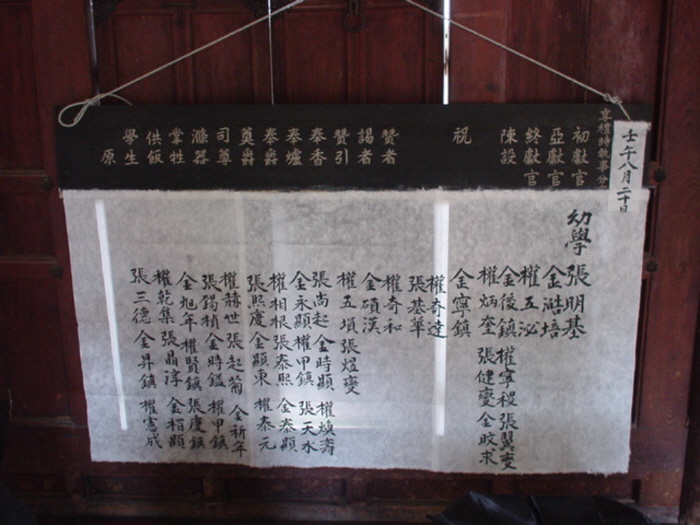 壬午八月二十日
享禮時執事分
初獻官
亞獻官
終獻官
陳設
祝
贊者
謁者
贊引
奉香
奉爐
奉爵
奠爵
司尊
滌器
掌牲
供飯
學生
原
幼學
張明基
金澔培
權五泌
金後鎮 權寧稷 張翼燮
權炳奎 張健燮 金晈求
金寧鎮
權奇達
張基華
權奇和
金碩漢
權五塤 張煜燮
張尚起 金時顯 權煥壽
金永顯 權甲鎮 張天水
權相根 張泰熙 金泰顯
張熙慶 金顯東 權泰元
權赫世 張起蘭 金祈年
張錫楨 金時鎰 權甲鎮
金旭年 權賢鎮 張慶鎮
權乾集 張晶淳 金相顯
張三德 金昇鎮 權憲成